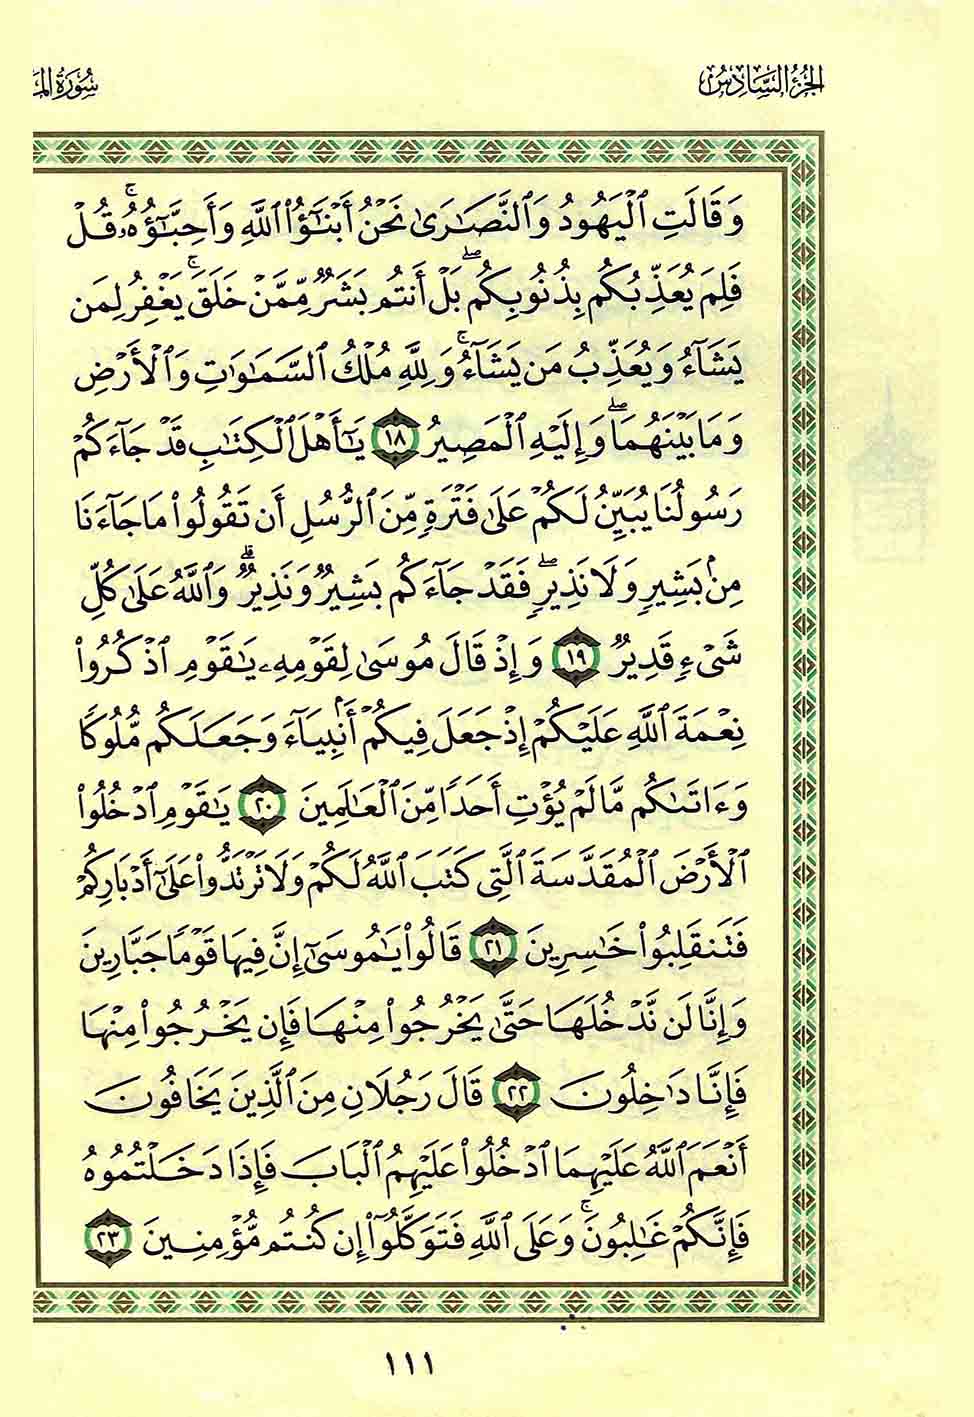 الجزء السادس
سورة الم
وَقَالَتِ ٱلْيَهُودُ وَٱلنَّصَٰرَىٰ نَحْنُ أَبْنَٰٓؤُا۟ ٱللَّهِ وَأَحِبَّٰٓؤُهُۥ ۚ قُلْ
فَلِمَ يُعَذِّبُكُم بِذُنُوبِكُم ۖ بَلْ أَنتُم بَشَرٌ مِّمَّنْ خَلَقَ ۚ يَغْفِرُ لِمَن
يَشَآءُ وَيُعَذِّبُ مَن يَشَآءُ ۚ وَلِلَّهِ مُلْكُ ٱلسَّمَٰوَٰتِ وَٱلْأَرْضِ
وَمَا بَيْنَهُمَا ۖ وَإِلَيْهِ ٱلْمَصِيرُ ١٨ يَٰٓأَهْلَ ٱلْكِتَٰبِ قَدْ جَآءَكُمْ
رَسُولُنَا يُبَيِّنُ لَكُمْ عَلَىٰ فَتْرَةٍ مِّنَ ٱلرُّسُلِ أَن تَقُولُوا۟ مَا جَآءَنَا
مِنۢ بَشِيرٍ وَلَا نَذِيرٍ ۖ فَقَدْ جَآءَكُم بَشِيرٌ وَنَذِيرٌ ۗ وَٱللَّهُ عَلَىٰ كُلِّ
شَىْءٍ قَدِيرٌ ١٩ وَإِذْ قَالَ مُوسَىٰ لِقَوْمِهِۦ يَٰقَوْمِ ٱذْكُرُوا۟
نِعْمَةَ ٱللَّهِ عَلَيْكُمْ إِذْ جَعَلَ فِيكُمْ أَنۢبِيَآءَ وَجَعَلَكُم مُّلُوكًا
وَءَاتَىٰكُم مَّا لَمْ يُؤْتِ أَحَدًا مِّنَ ٱلْعَٰلَمِينَ ٢٠ يَٰقَوْمِ ٱدْخُلُوا۟
ٱلْأَرْضَ ٱلْمُقَدَّسَةَ ٱلَّتِى كَتَبَ ٱللَّهُ لَكُمْ وَلَا تَرْتَدُّوا۟ عَلَىٰٓ أَدْبَارِكُمْ
فَتَنقَلِبُوا۟ خَٰسِرِينَ ٢١ قَالُوا۟ يَٰمُوسَىٰٓ إِنَّ فِيهَا قَوْمًا جَبَّارِينَ
وَإِنَّا لَن نَّدْخُلَهَا حَتَّىٰ يَخْرُجُوا۟ مِنْهَا فَإِن يَخْرُجُوا۟ مِنْهَا
فَإِنَّا دَٰخِلُونَ ٢٢ قَالَ رَجُلَانِ مِنَ ٱلَّذِينَ يَخَافُونَ
أَنْعَمَ ٱللَّهُ عَلَيْهِمَا ٱدْخُلُوا۟ عَلَيْهِمُ ٱلْبَابَ فَإِذَا دَخَلْتُمُوهُ
فَإِنَّكُمْ غَٰلِبُونَ ۚ وَعَلَى ٱللَّهِ فَتَوَكَّلُوٓا۟ إِن كُنتُم مُّؤْمِنِينَ ٢٣
١١١